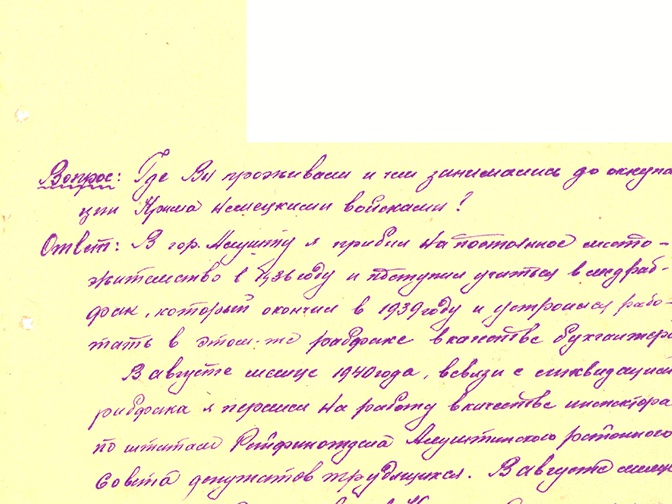 Вопрос: Где Вы проживали и чем занимались до оккупа
ции Крыма немецкими войсками?
Ответ: В гор. Алушту я прибыл на постоянное место-
жительство в 1936 году и поступил учиться в медраб-
фак, который окончил в 1939 году и устроился рабо-
тать в этом-же рабфаке в качестве бухгалтера
В августе месяце 1940 года, в связи с ликвидацией
рабфака я перешел на работу в качестве инспектора
по штатам Райфинотдела Алуштинского районного
Совета депутатов трудящихся. В августе месяце